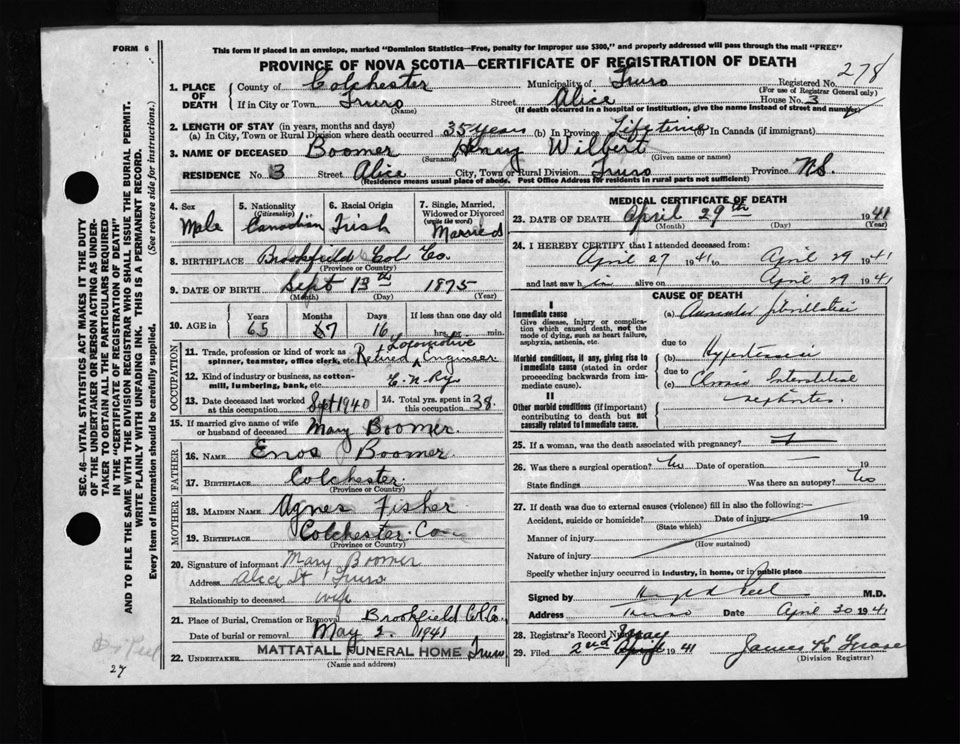 FORM 6
This form if placed in an envelope, marked "Dominion Statistics—Free, penalty for improper use $300," and properly addressed will pass through the mail "FREE"
PROVINCE OF NOVA SCOTIA—CERTIFICATE OF REGISTRATION OF DEATH
278
1. PLACE OF DEATH
County of Colchester Municipality of Truro Registered No.
(For use of Registrar General only)
If in City or Town Truro Street Alice House No. 3
(Name) (If death occurred in a hospital or institution, give the name instead of street and number)
2. LENGTH OF STAY (in years, months and days)
(a) In City, Town or Rural Division where death occurred 35 Years (b) In Province Lifetime In Canada (if immigrant)
3. NAME OF DECEASED Boomer Henry Wilbert
(Surname) (Given name or names)
RESIDENCE No. 3 Street Alice City, Town or Rural Division Truro Province N.S.
(Residence means usual place of abode. Post Office Address for residents in rural parts not sufficient)
SEC. 46—VITAL STATISTICS ACT MAKES IT THE DUTY
OF THE UNDERTAKER OR PERSON ACTING AS UNDER-
TAKER TO OBTAIN ALL THE PARTICULARS REQUIRED
IN THE "CERTIFICATE OF REGISTRATION OF DEATH"
AND TO FILE THE SAME WITH THE DIVISION REGISTRAR WHO SHALL ISSUE THE BURIAL PERMIT.
WRITE PLAINLY WITH UNFADING INK. THIS IS A PERMANENT RECORD.
Every item of information should be carefully supplied. (See reverse side for instructions.)
4. Sex
Male
5. Nationality
(Citizenship)
Canadian
6. Racial Origin
Irish
7. Single, Married,
Widowed or Divorced
(write the word)
Married
8. BIRTHPLACE Brookfield Col Co.
(Province or Country)
9. DATE OF BIRTH Sept 13th 1875
(Month) (Day) (Year)
10. AGE in
Years Months Days If less than one day old
65 7 16 hrs. or min.
OCCUPATION
11. Trade, profession or kind of work as
spinner, teamster, office clerk, etc. Retired Locomotive Engineer
12. Kind of industry or business, as cotton-
mill, lumbering, bank, etc. C.N.Ry
13. Date deceased last worked
at this occupation Sept 1940
14. Total yrs. spent in
this occupation 38.
15. If married give name of wife
or husband of deceased Mary Boomer.
FATHER
16. NAME Enos Boomer
17. BIRTHPLACE Colchester
(Province or Country)
MOTHER
18. MAIDEN NAME Agnes Fisher
19. BIRTHPLACE Colchester Co
(Province or Country)
20. Signature of informant Mary Boomer
Address Alice St Truro
Relationship to deceased wife
21. Place of Burial, Cremation or Removal Brookfield Col Co.
Date of burial or removal May 2. 1941
22. UNDERTAKER MATTATALL FUNERAL HOME Truro
(Name and address)
27
MEDICAL CERTIFICATE OF DEATH
23. DATE OF DEATH April 29th 1941
(Month) (Day) (Year)
24. I HEREBY CERTIFY that I attended deceased from:
April 27 1941 to April 29 1941
and last saw him alive on April 29 1941
CAUSE OF DEATH
I
Immediate cause
Give disease, injury or complica-
tion which caused death, not the
mode of dying, such as heart failure,
asphyxia, asthenia, etc.
(a) Auricular fibrillation
due to
Morbid conditions, if any, giving rise to
immediate cause (stated in order
proceeding backwards from im-
mediate cause).
(b) Hypertension
due to
(c) Chronic Interstitial
nephritis.
II
Other morbid conditions (if important)
contributing to death but not
causally related to immediate cause.
25. If a woman, was the death associated with pregnancy?
26. Was there a surgical operation? No Date of operation 19
State findings Was there an autopsy? No
27. If death was due to external causes (violence) fill in also the following:—
Accident, suicide or homicide? Date of injury 19
(State which)
Manner of injury
(How sustained)
Nature of injury
Specify whether injury occurred in industry, in home, or in public place
Signed by M.D.
Address Truro Date April 30 1941
28. Registrar's Record Number
29. Filed 2nd May April 1941 James
(Division Registrar)